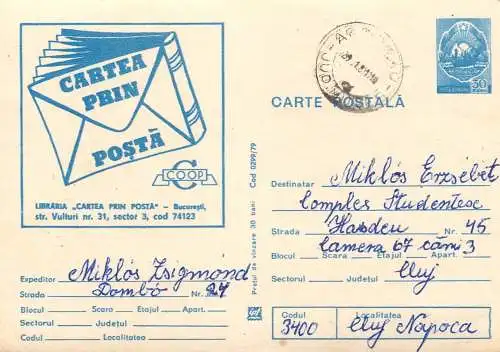 CARTEA
PRIN
POȘTĂ
COOP
LIBRĂRIA „CARTEA PRIN POȘTA" — București,
str. Vulturi nr. 31, sector 3, cod 74123
Expeditor Miklós Zsigmond
Strada Dombó Nr. 24
Blocul Scara Etajul Apart.
Sectorul Județul
Codul Localitatea
Prețul de vînzare 30 bani Cod 0299/79
CARTE POȘTALĂ
Destinatar Miklós Erzsébet
Complex Studentesc
Strada Hasdeu Nr. 45
Camera 67 cămi 3
Blocul Scara Etajul Apart.
Sectorul Județul Cluj
Codul Localitatea
3400 Cluj Napoca